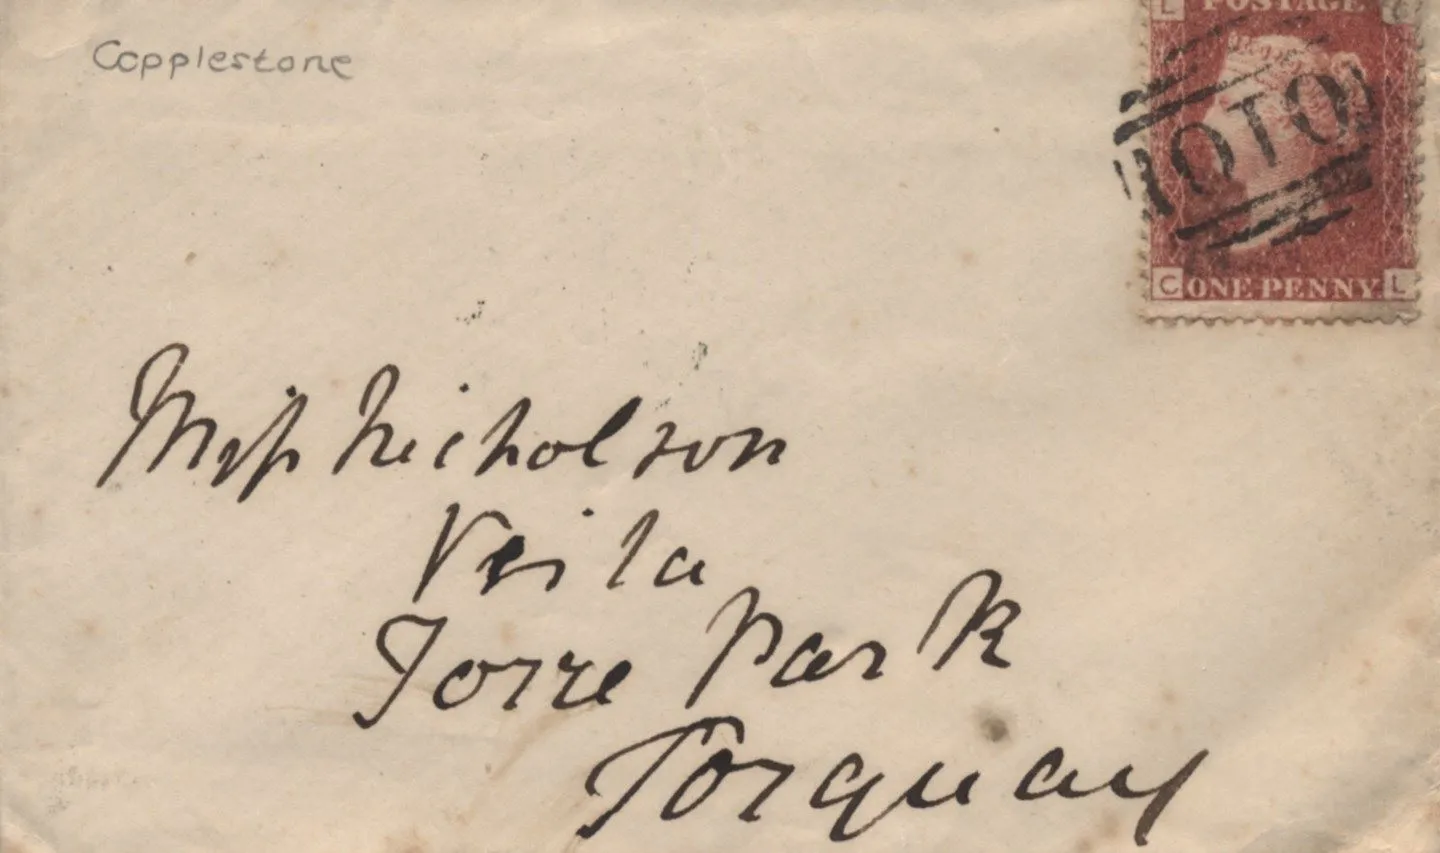 Copplestone
L POSTAGE C
O10
C ONE PENNY L
Miss Nicholson
Veila
Torre Park
Torquay